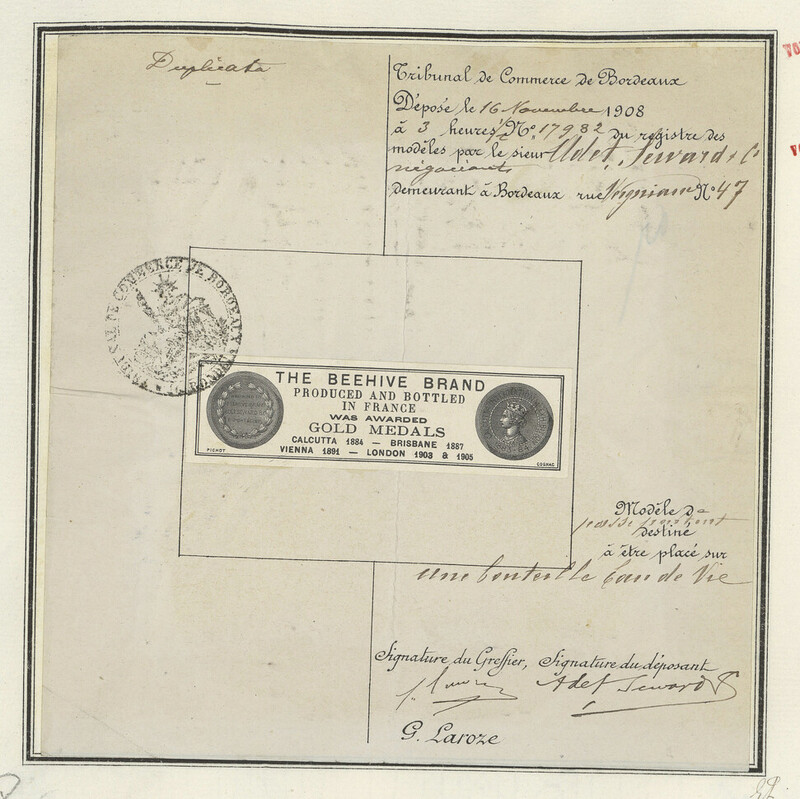 Duplicata
Tribunal de Commerce de Bordeaux
Déposé le 16 Novembre 1908
à 3 heures No. 17982 du registre des
modèles par le sieur Adet, Seward & Co
négociants
demeurant à Bordeaux rue No 47
TRIBUNAL DE COMMERCE DE BORDEAUX
GIRONDE
THE BEEHIVE BRAND
PRODUCED AND BOTTLED
IN FRANCE
WAS AWARDED
GOLD MEDALS
CALCUTTA 1884 — BRISBANE 1887
VIENNA 1891 — LONDON 1903 & 1905
PICHOT
COGNAC
Modèle de
destiné
à être placé sur
une bouteille Eau de Vie
Signature du Greffier, Signature du déposant
Adet Seward
G. Laroze